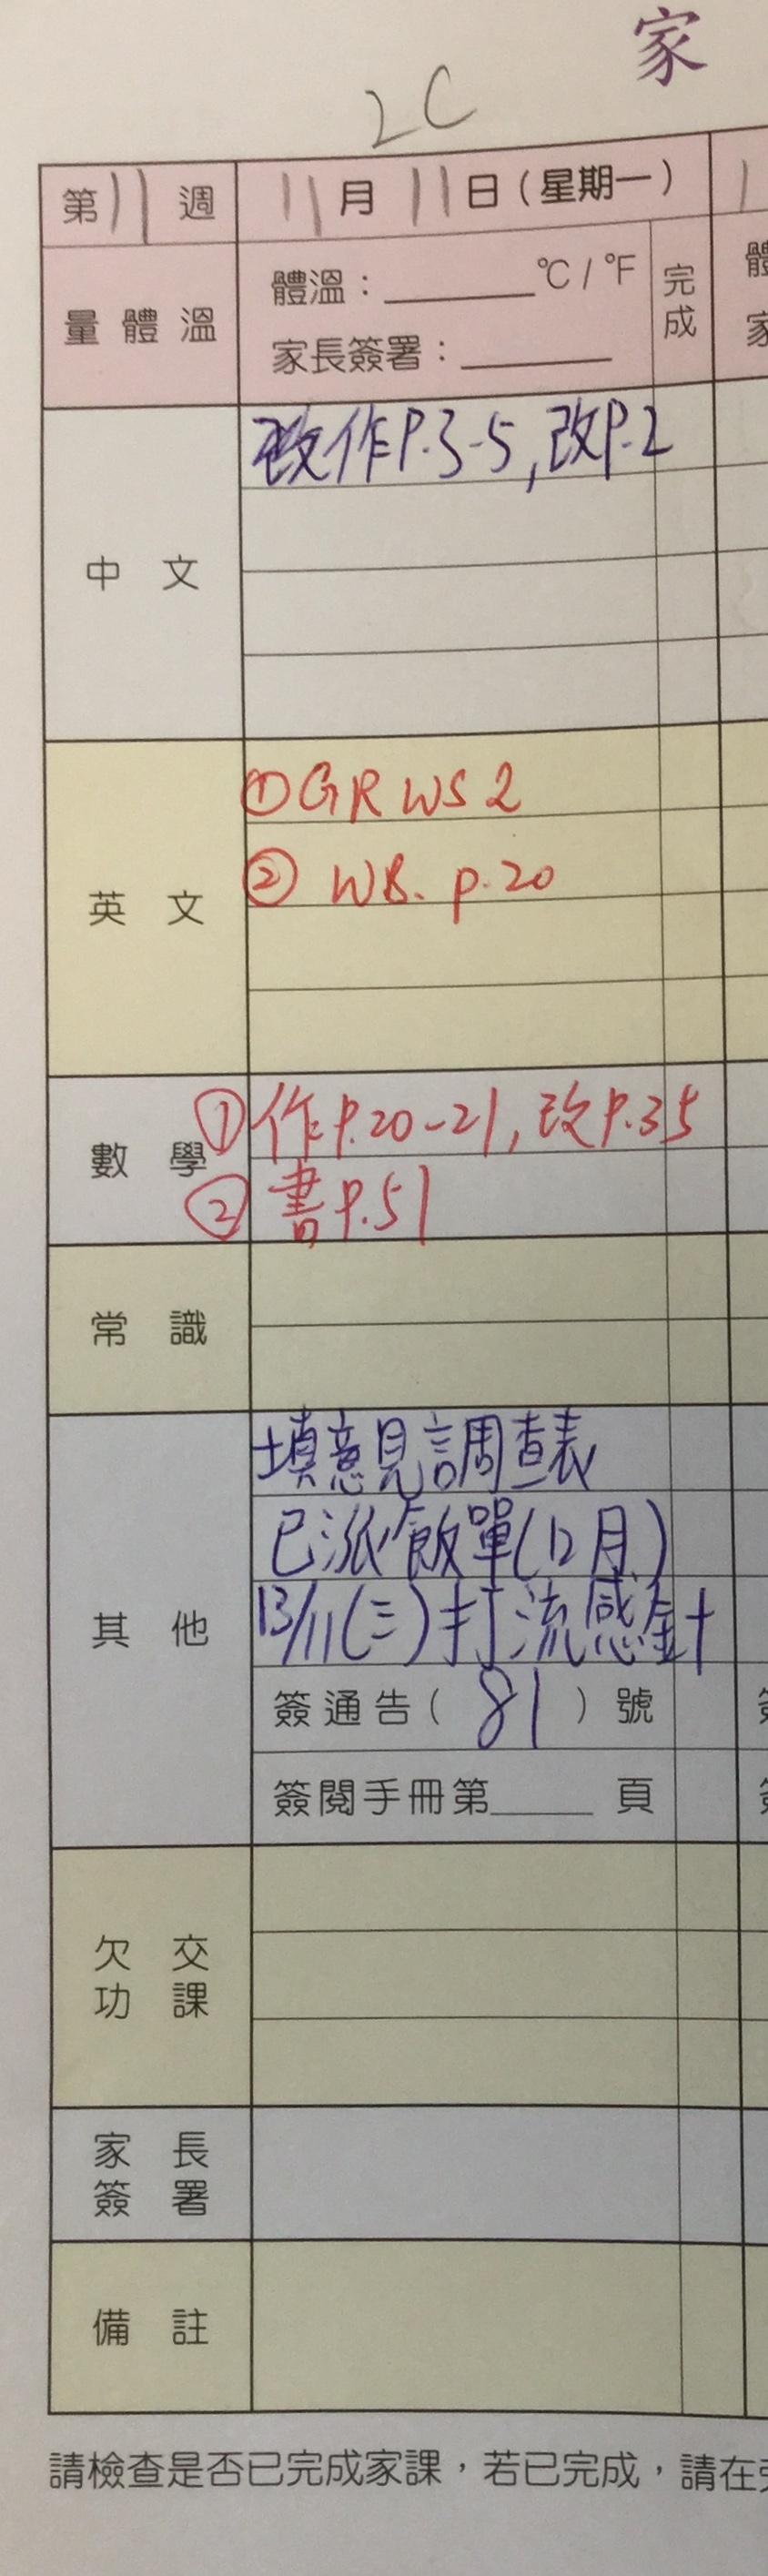 家
2C
第11週 11月11日(星期一)
量體溫 體溫：______°C / °F 完成
家長簽署：______
中文 改作P.3-5,改P.2
英文 ①GR WS 2
② WB. p.20
數學 ①作P.20-21,改P.35
②書P.51
常識
其他 填意見調查表
已派飯單(12月)
13/11(三)打流感針
簽通告(81)號
簽閱手冊第____頁
欠交功課
家長簽署
備註
請檢查是否已完成家課，若已完成，請在